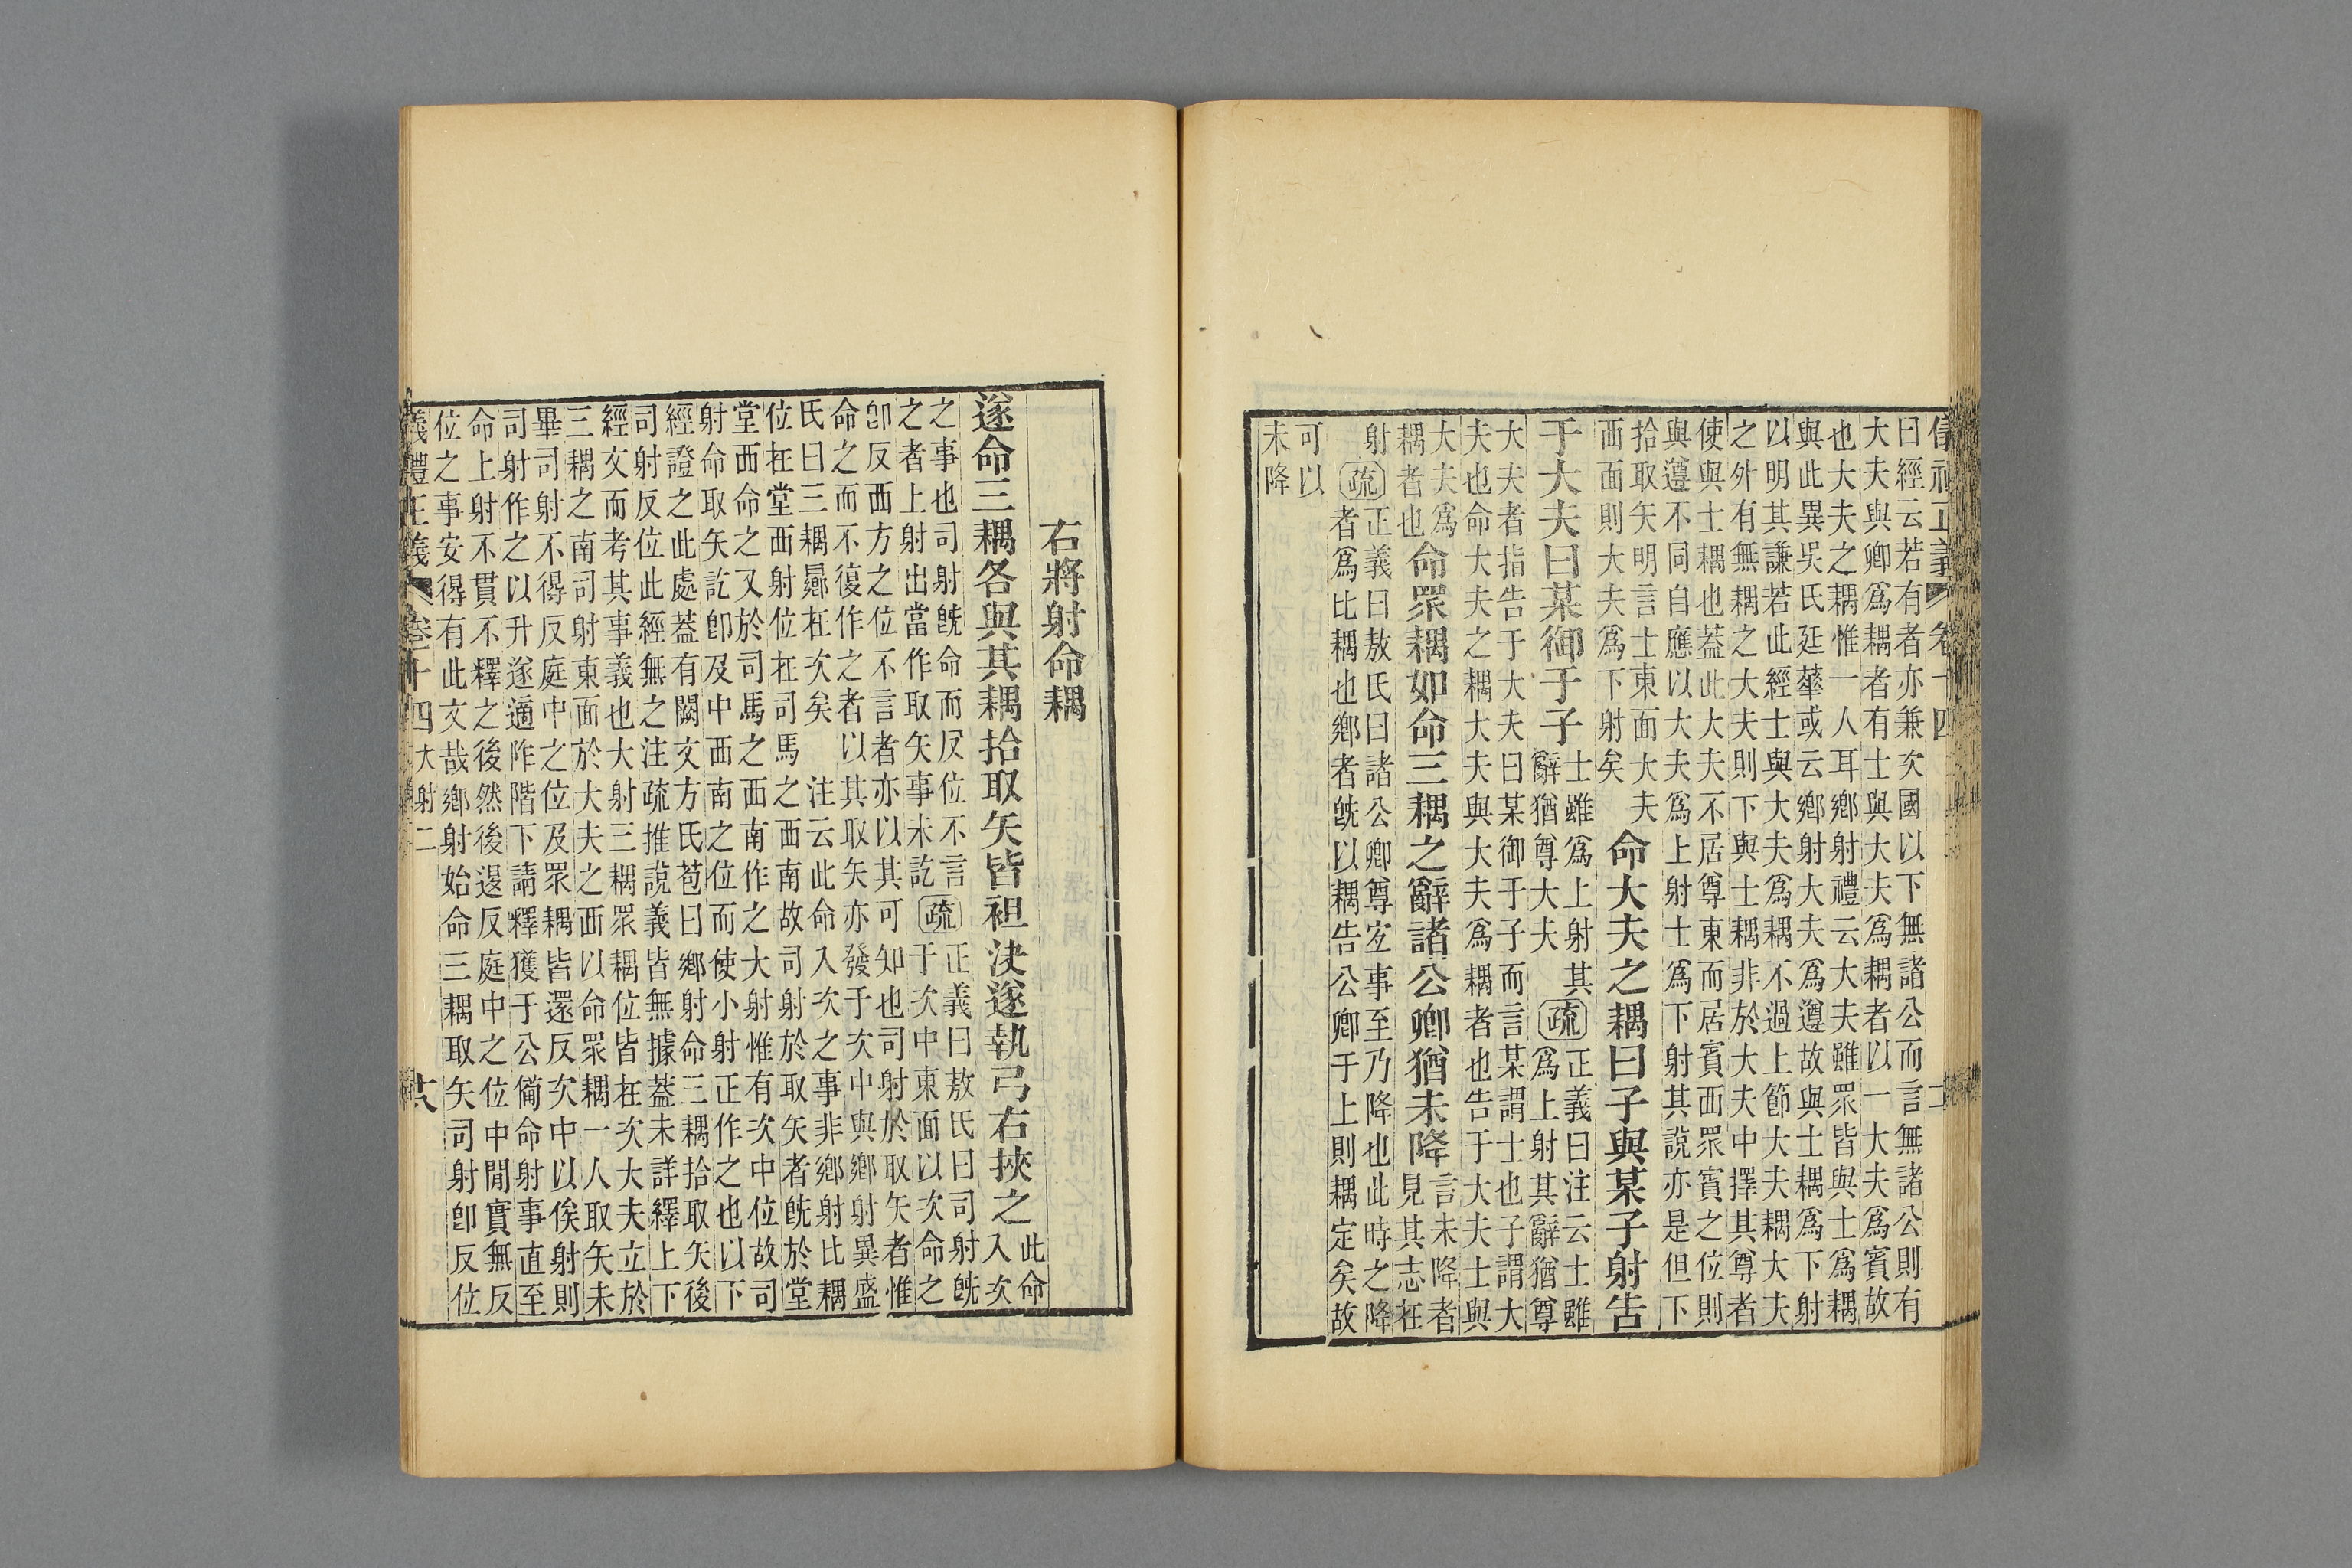 曰經云若有者亦兼次國以下無諸公而言無諸公則有
大夫與卿爲耦者有士與大夫爲耦者以一大夫爲賓故
也大夫之耦惟一人耳鄉射禮云大夫雖眾皆與士爲耦
與此異吳氏廷華或云鄉射大夫爲遵故與士耦爲下射
以明其謙若此經士與大夫爲耦不過上節大夫耦大夫
之外有無耦之大夫則下與士耦非於大夫中擇其尊者
使與士耦也葢此大夫不居尊東而居賓西眾賓之位則
與遵不同自應以大夫爲上射士爲下射其說亦是但下
拾取矢明言士東面大夫
西面則大夫爲下射矣
命大夫之耦曰子與某子射告
于大夫曰某御于子
士雖爲上射其
辭猶尊大夫
疏
正義曰注云士雖
爲上射其辭猶尊
大夫者指告于大夫曰某御于子而言某謂士也子謂大
夫也命大夫之耦大夫與大夫爲耦者也告于大夫士與
大夫爲
耦者也
命眾耦如命三耦之辭諸公卿猶未降
言未降者
見其志在
射
疏
正義曰敖氏曰諸公卿尊宜事至乃降也此時之降
者爲比耦也鄉者旣以耦告公卿于上則耦定矣故
可以
未降
右將射命耦
遂命三耦各與其耦拾取矢皆袒決遂執弓右挾之
此命
入次
之事也司射旣命而反位不言
之者上射出當作取矢事未訖
疏
正義曰敖氏曰司射旣
于次中東面以次命之
卽反西方之位不言者亦以其可知也司射於取矢者惟
命之而不復作之者以其取矢亦發于次中與鄉射異盛
氏曰三耦曏在次矣　注云此命入次之事非鄉射比耦
位在堂西射位在司馬之西南故司射於取矢者旣於堂
堂西命之又於司馬之西南作之大射惟有次中位故司
射命取矢訖卽及中西南之位而使小射正作之也以下
經證之此處葢有闕文方氏苞曰鄉射命三耦拾取矢後
司射反位此經無之注疏推說義皆無據葢未詳繹上下
經文而考其事義也大射三耦眾耦位皆在次大夫立於
三耦之南司射東面於大夫之西以命眾耦一人取矢未
畢司射不得反庭中之位及眾耦皆還反次中以俟射則
司射作之以升遂適阼階下請釋獲于公備命射事直至
命上射不貫不釋之後然後退反庭中之位中閒實無反
位之事安得有此文哉鄉射始命三耦取矢司射卽反位
義禮正義　卷十四大射二　六